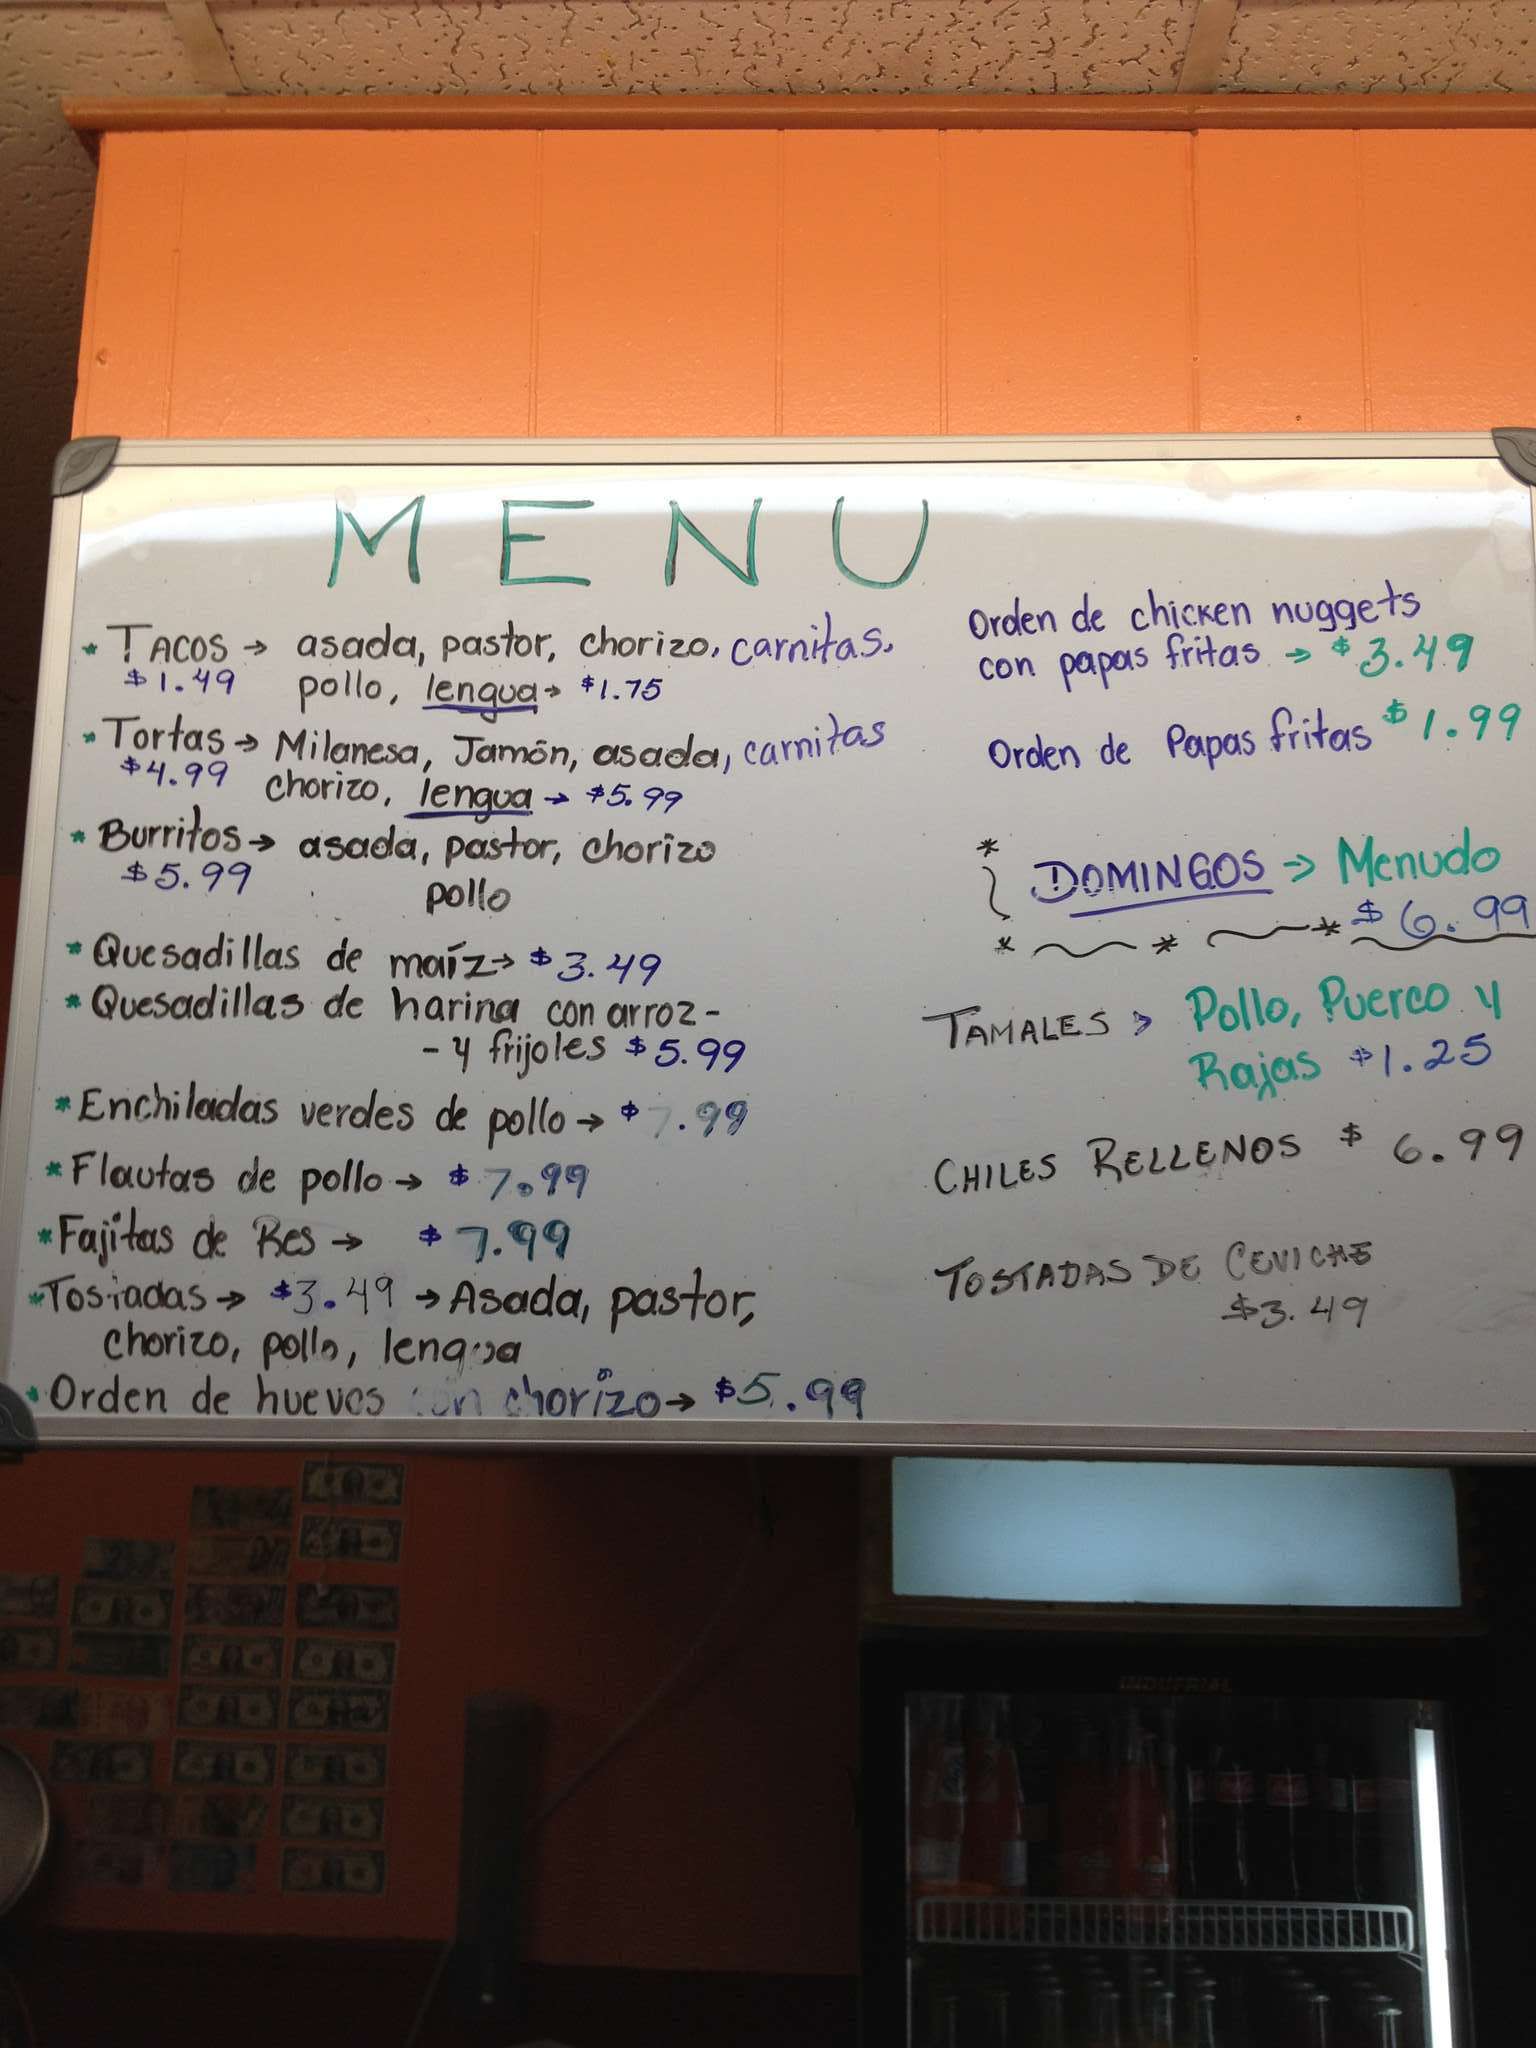 MENU
* TACOS → asada, pastor, chorizo, carnitas,
$1.49 pollo, lengua → $1.75
* Tortas → Milanesa, Jamón, asada, carnitas
$4.99 chorizo, lengua → $5.99
* Burritos → asada, pastor, chorizo
$5.99 pollo
* Quesadillas de maíz → $3.49
* Quesadillas de harina con arroz -
- y frijoles $5.99
* Enchiladas verdes de pollo → $7.99
* Flautas de pollo → $7.99
* Fajitas de Res → $7.99
* Tostadas → $3.49 → Asada, pastor,
chorizo, pollo, lengua
* Orden de huevos con chorizo → $5.99
Orden de chicken nuggets
con papas fritas → $3.49
Orden de Papas fritas $1.99
* DOMINGOS → Menudo
$6.99
TAMALES > Pollo, Puerco y
Rajas $1.25
CHILES RELLENOS $6.99
TOSTADAS DE CEVICHE
$3.49